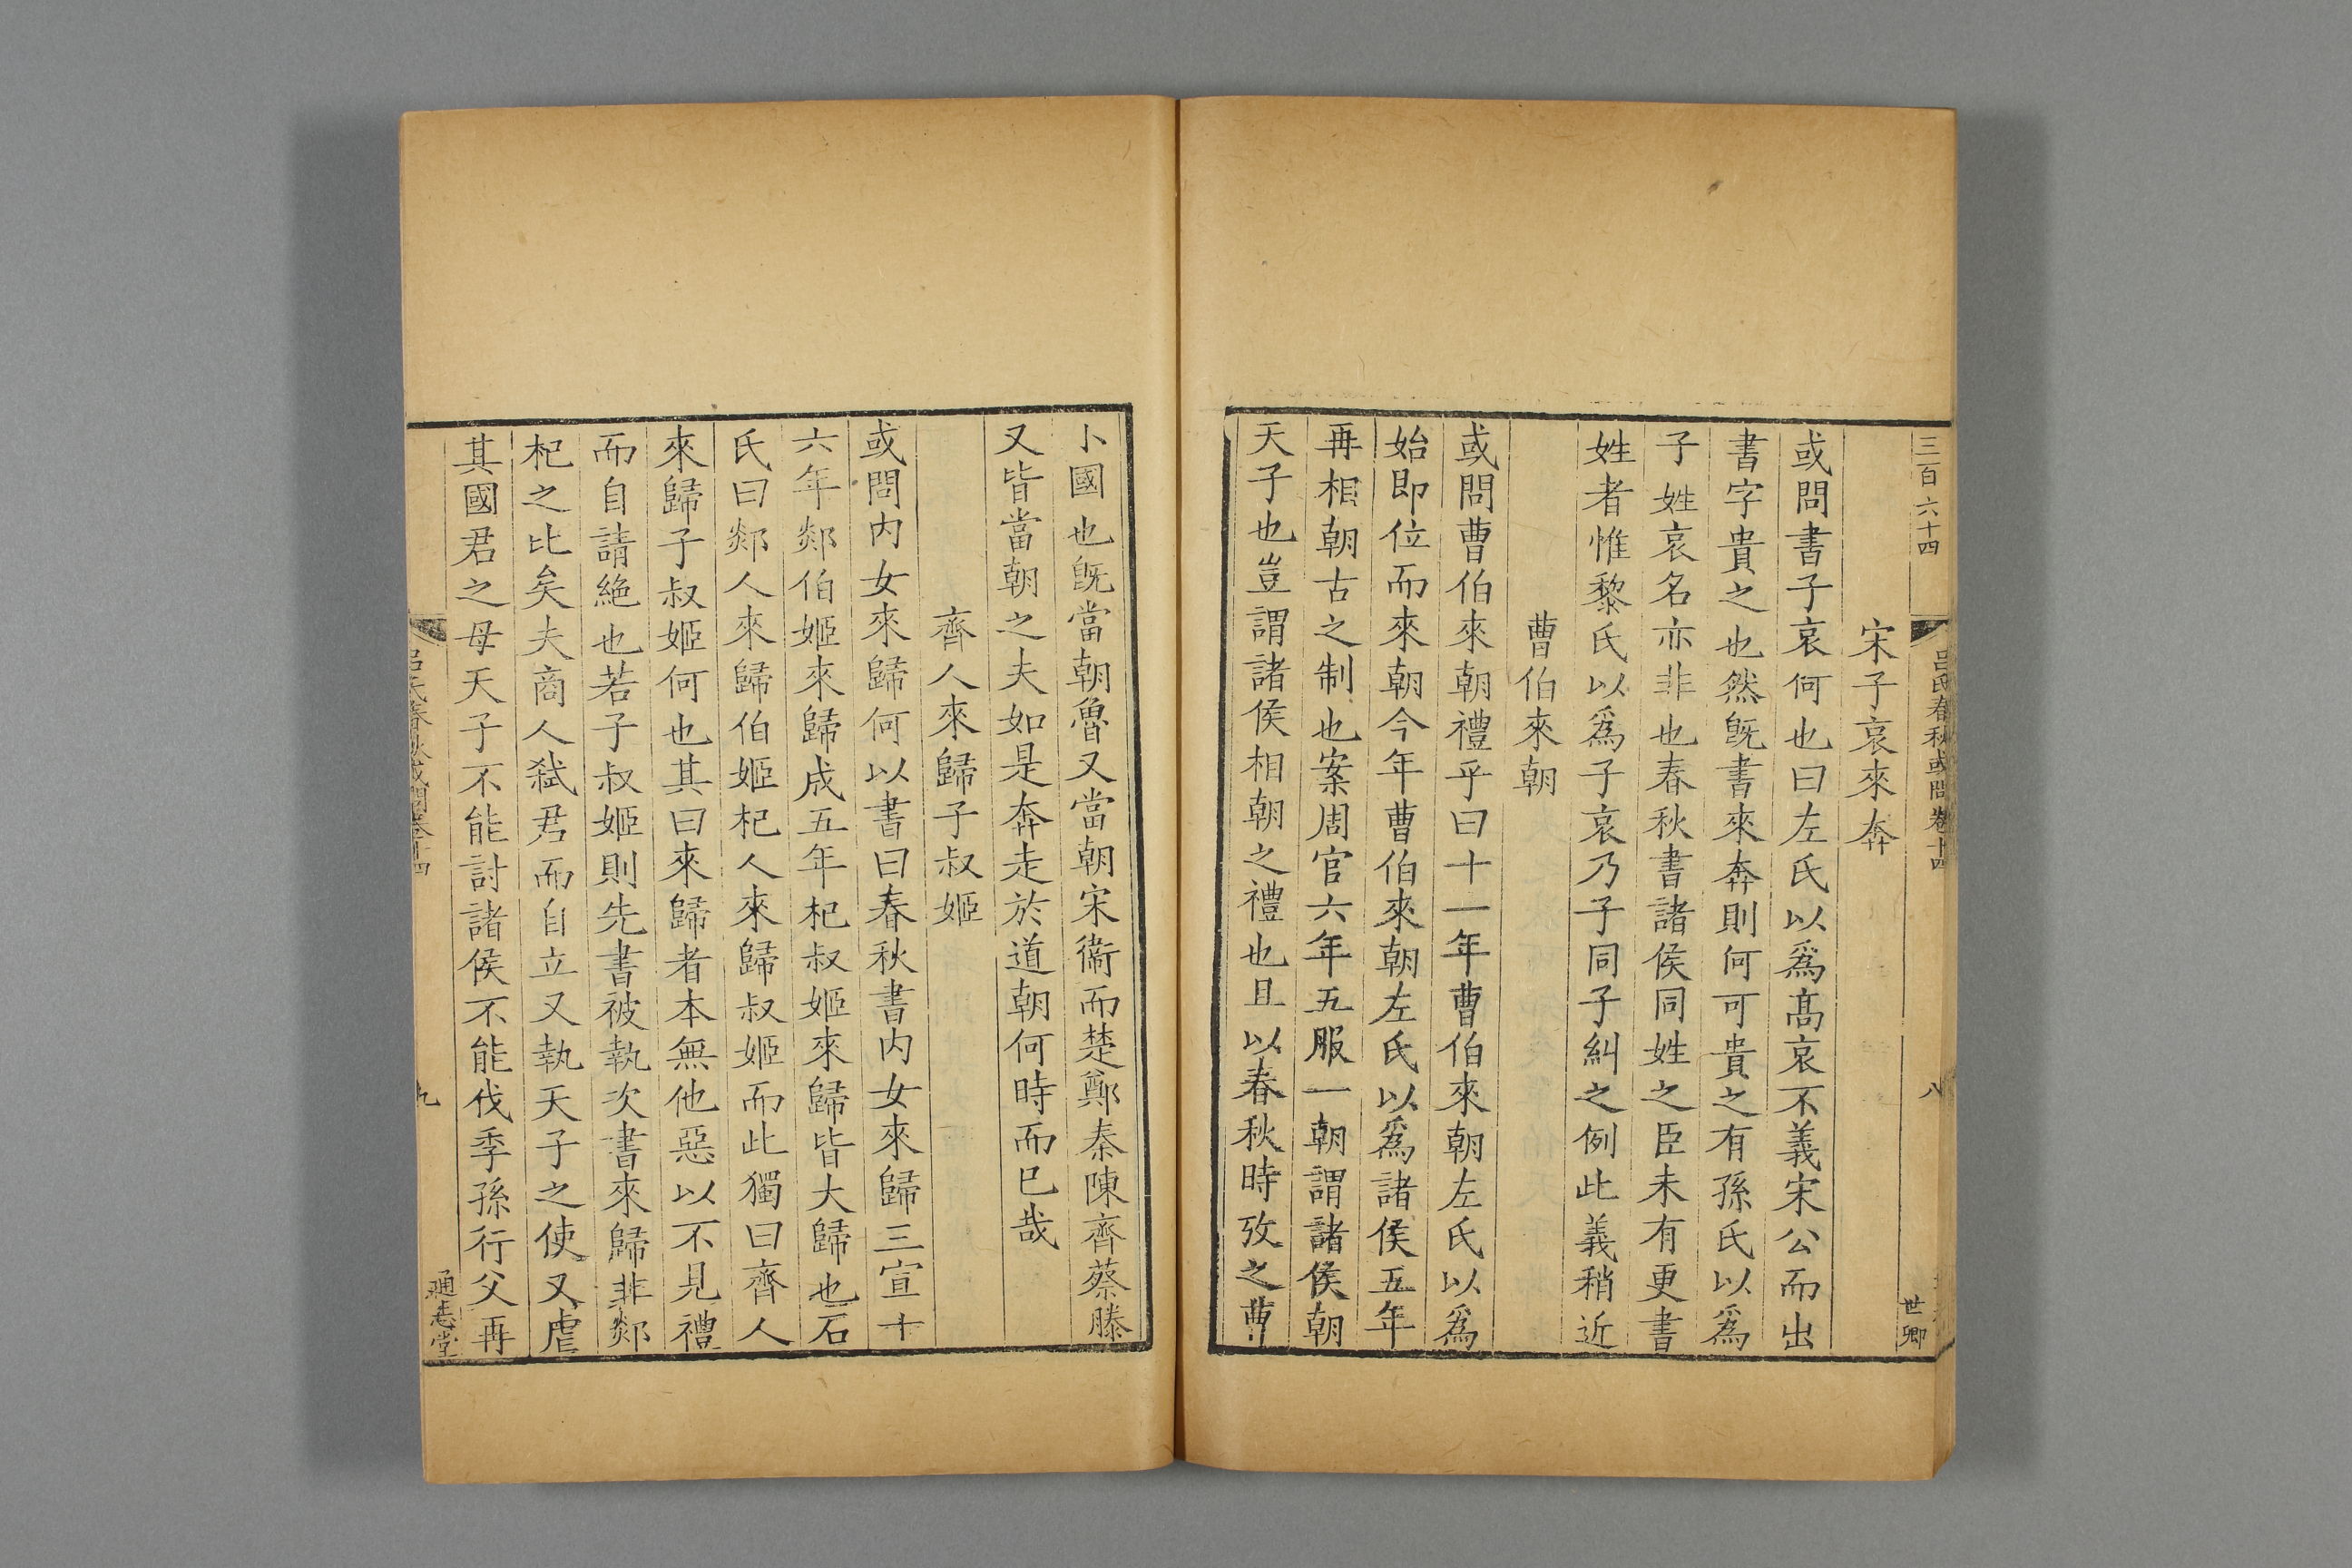 三百六十四
呂氏春秋或問卷十四
八
世卿
宋子哀來奔
或問書子哀何也曰左氏以爲高哀不義宋公而出
書字貴之也然旣書來奔則何可貴之有孫氏以爲
子姓哀名亦非也春秋書諸侯同姓之臣未有更書
姓者惟黎氏以爲子哀乃子同子糾之例此義稍近
曹伯來朝
或問曹伯來朝禮乎曰十一年曹伯來朝左氏以爲
始即位而來朝今年曹伯來朝左氏以爲諸侯五年
再相朝古之制也案周官六年五服一朝謂諸侯朝
天子也豈謂諸侯相朝之禮也且以春秋時攷之曹
小國也旣當朝魯又當朝宋衞而楚鄭秦陳齊蔡滕
又皆當朝之夫如是奔走於道朝何時而已哉
齊人來歸子叔姬
或問內女來歸何以書曰春秋書內女來歸三宣十
六年郯伯姬來歸成五年杞叔姬來歸皆大歸也石
氏曰郯人來歸伯姬杞人來歸叔姬而此獨曰齊人
來歸子叔姬何也其曰來歸者本無他惡以不見禮
而自請絶也若子叔姬則先書被執次書來歸非郯
杞之比矣夫商人弑君而自立又執天子之使又虐
其國君之母天子不能討諸侯不能伐季孫行父再
呂氏春秋或問卷十四
九
通志堂